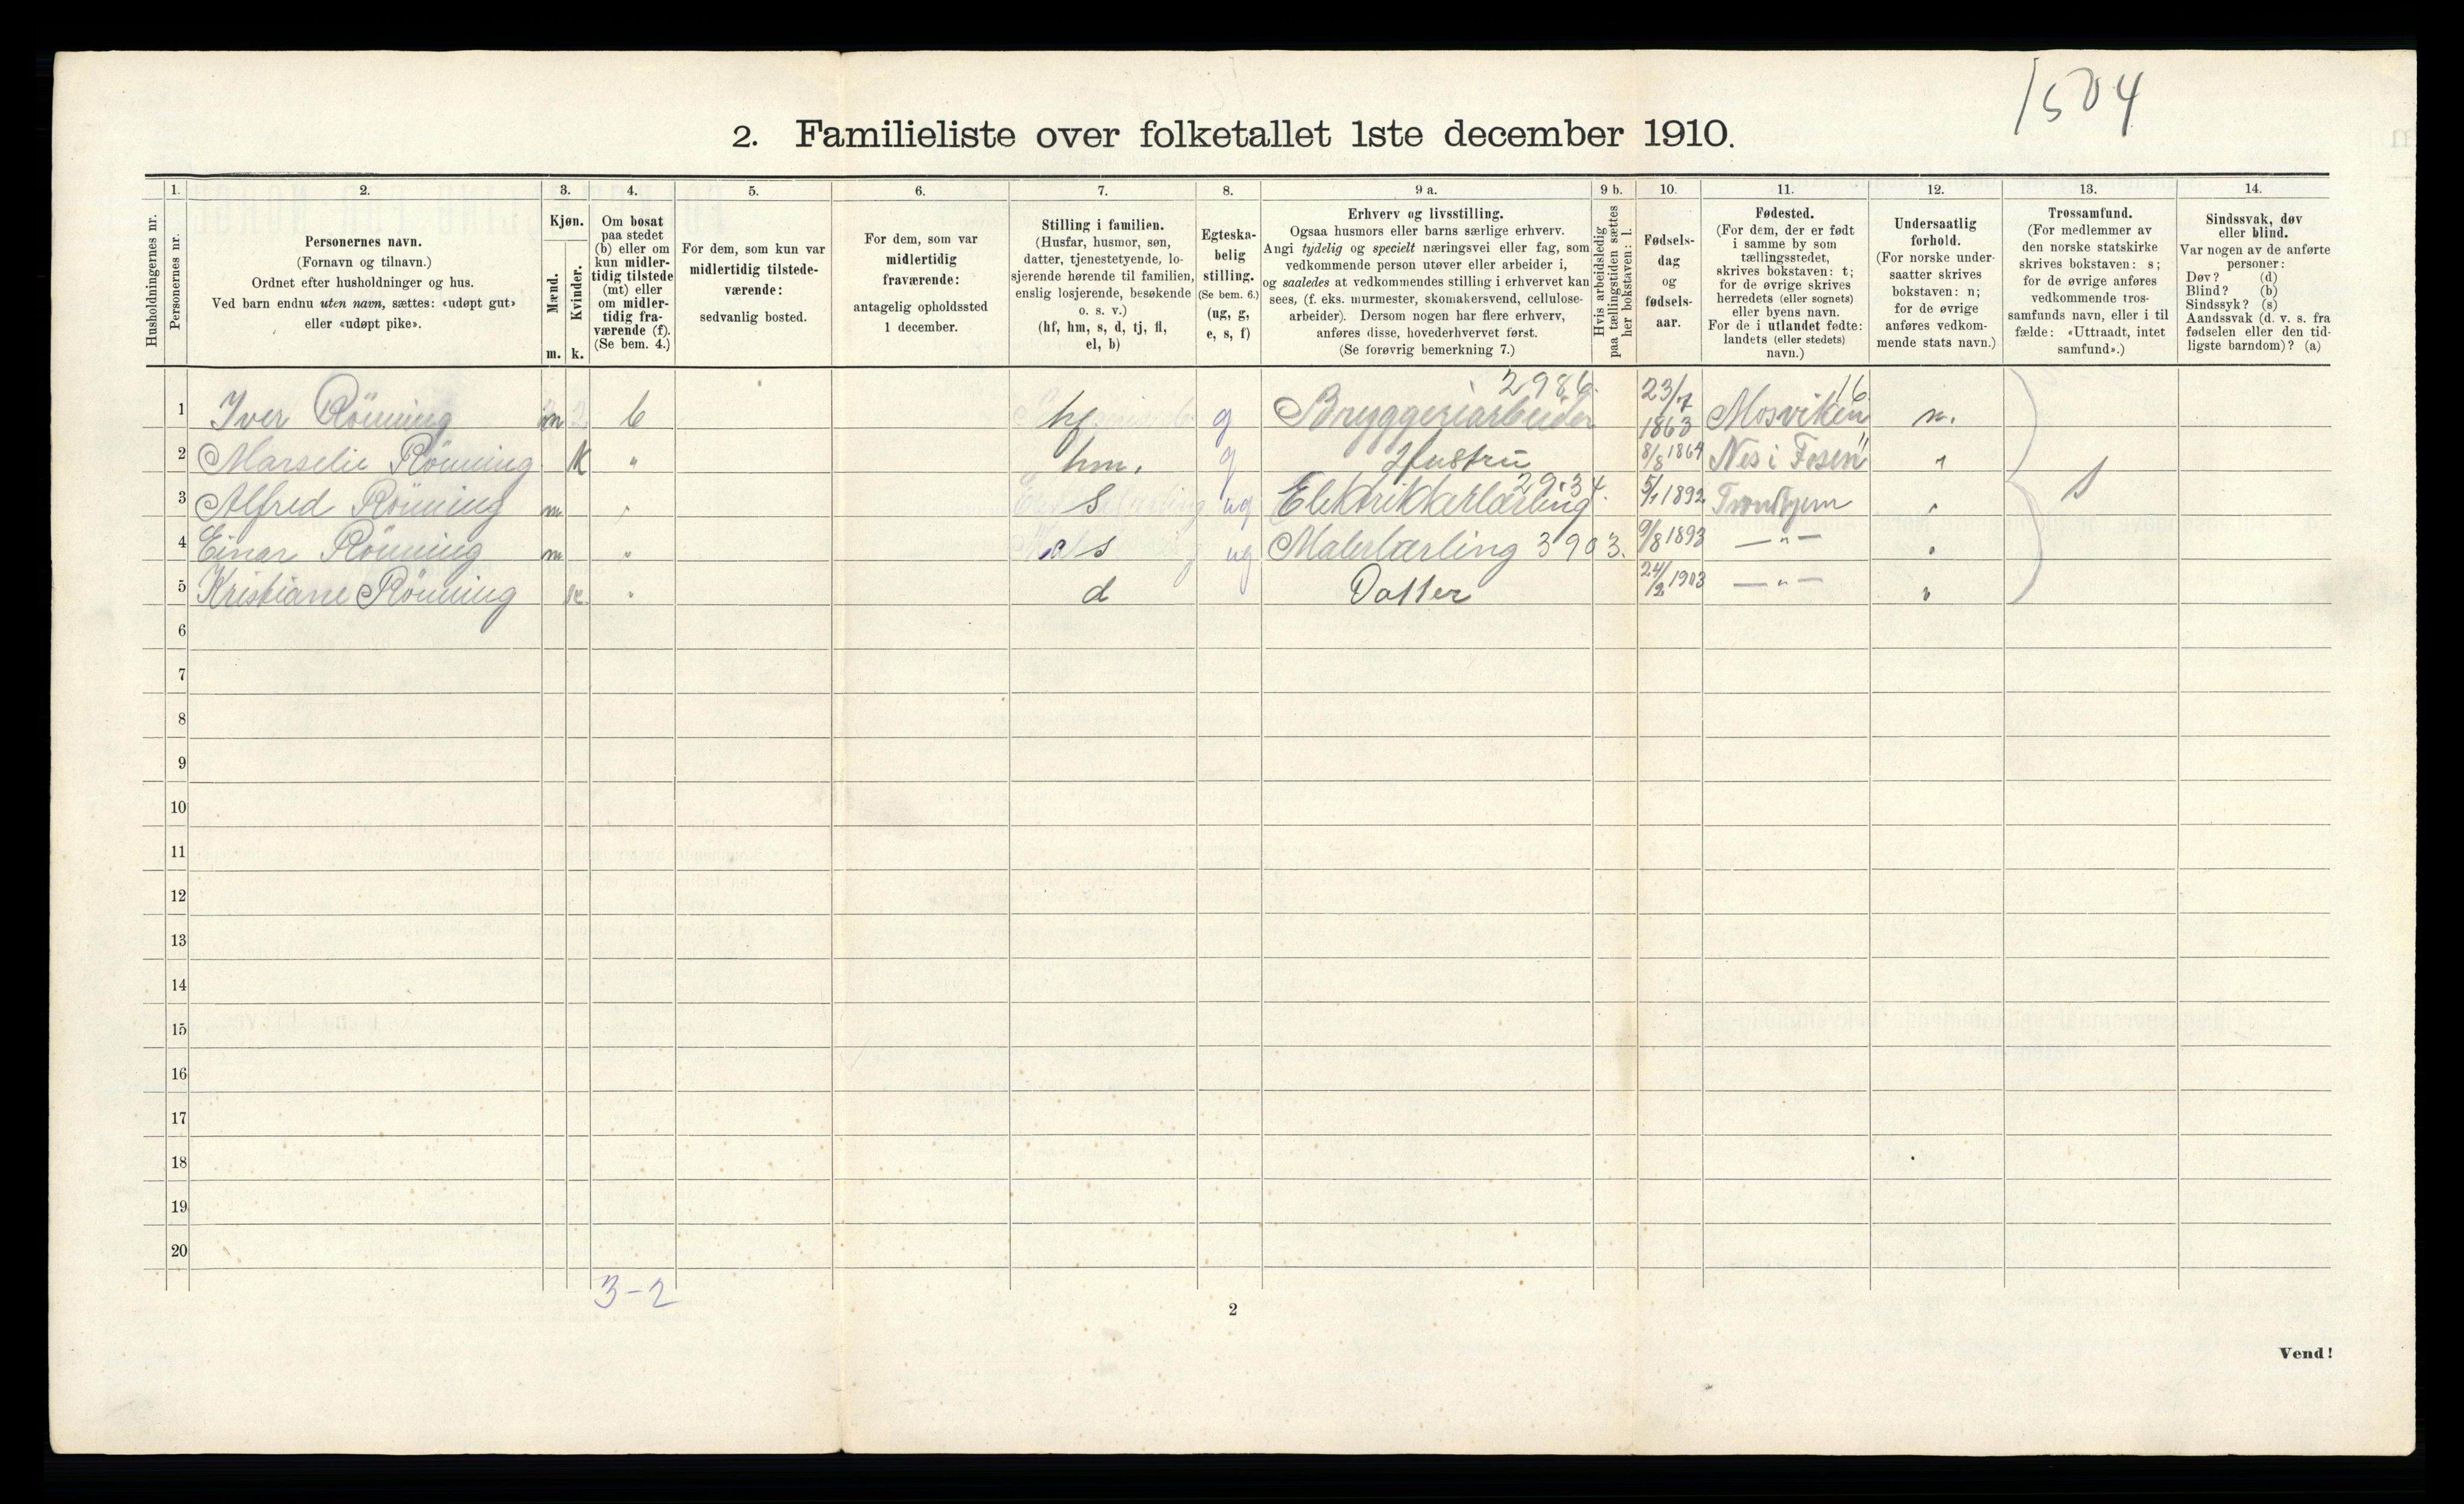 1504
2. Familieliste over folketallet 1ste december 1910.
Husholdningernes nr.
1.
Personernes nr.
2.
Personernes navn.
(Fornavn og tilnavn.)
Ordnet efter husholdninger og hus.
Ved barn endnu uten navn, sættes: «udøpt gut»
eller «udøpt pike».
3.
Kjøn.
Mænd.
Kvinder.
m. k.
4.
Om bosat
paa stedet
(b) eller om
kun midler-
tidig tilstede
(mt) eller
om midler-
tidig fra-
værende (f).
(Se bem. 4.)
5.
For dem, som kun var
midlertidig tilstede-
værende:
sedvanlig bosted.
6.
For dem, som var
midlertidig
fraværende:
antagelig opholdssted
1 december.
7.
Stilling i familien.
(Husfar, husmor, søn,
datter, tjenestetyende, lo-
sjerende hørende til familien,
enslig losjerende, besøkende
o. s. v.)
(hf, hm, s, d, tj, fl,
el, b)
8.
Egteska-
belig
stilling.
(Se bem. 6.)
(ug, g,
e, s, f)
9 a.
Erhverv og livsstilling.
Ogsaa husmors eller barns særlige erhverv.
Angi tydelig og specielt næringsvei eller fag, som
vedkommende person utøver eller arbeider i,
og saaledes at vedkommendes stilling i erhvervet kan
sees, (f. eks. murmester, skomakersvend, cellulose-
arbeider). Dersom nogen har flere erhverv,
anføres disse, hovederhvervet først.
(Se forøvrig bemerkning 7.)
9 b.
Hvis arbeidsledig
paa tællingstiden sættes
her bokstaven: l.
10.
Fødsels-
dag
og
fødsels-
aar.
11.
Fødested.
(For dem, der er født
i samme by som
tællingsstedet,
skrives bokstaven: t;
for de øvrige skrives
herredets (eller sognets)
eller byens navn.
For de i utlandet fødte:
landets (eller stedets)
navn.)
12.
Undersaatlig
forhold.
(For norske under-
saatter skrives
bokstaven: n;
for de øvrige
anføres vedkom-
mende stats navn.)
13.
Trossamfund.
(For medlemmer av
den norske statskirke
skrives bokstaven: s;
for de øvrige anføres
vedkommende tros-
samfunds navn, eller i til
fælde: «Uttraadt, intet
samfund».)
14.
Sindssvak, døv
eller blind.
Var nogen av de anførte
personer:
Døv? (d)
Blind? (b)
Sindssyk? (s)
Aandssvak (d. v. s. fra
fødselen eller den tid-
ligste barndom)? (a)
2986. 16
1 Iver Rönning m b hf g Bryggeriarbeider 23/7 1863 Mosviken n.
2 Marselie Rönning k " hm. g Hustru 8/8 1864 Nes i Fosen " "
2934.
3 Alfred Rönning m " s ug Elektrikkerlærling 5/1 1892 Trondhjem " s
4 Einar Rönning m " s ug Malerlærling 3903. 9/8 1893 — " — "
5 Kristiane Rönning k " d Datter 24/2 1903 — " — "
6
7
8
9
10
11
12
13
14
15
16
17
18
19
20
3-2
2
Vend!